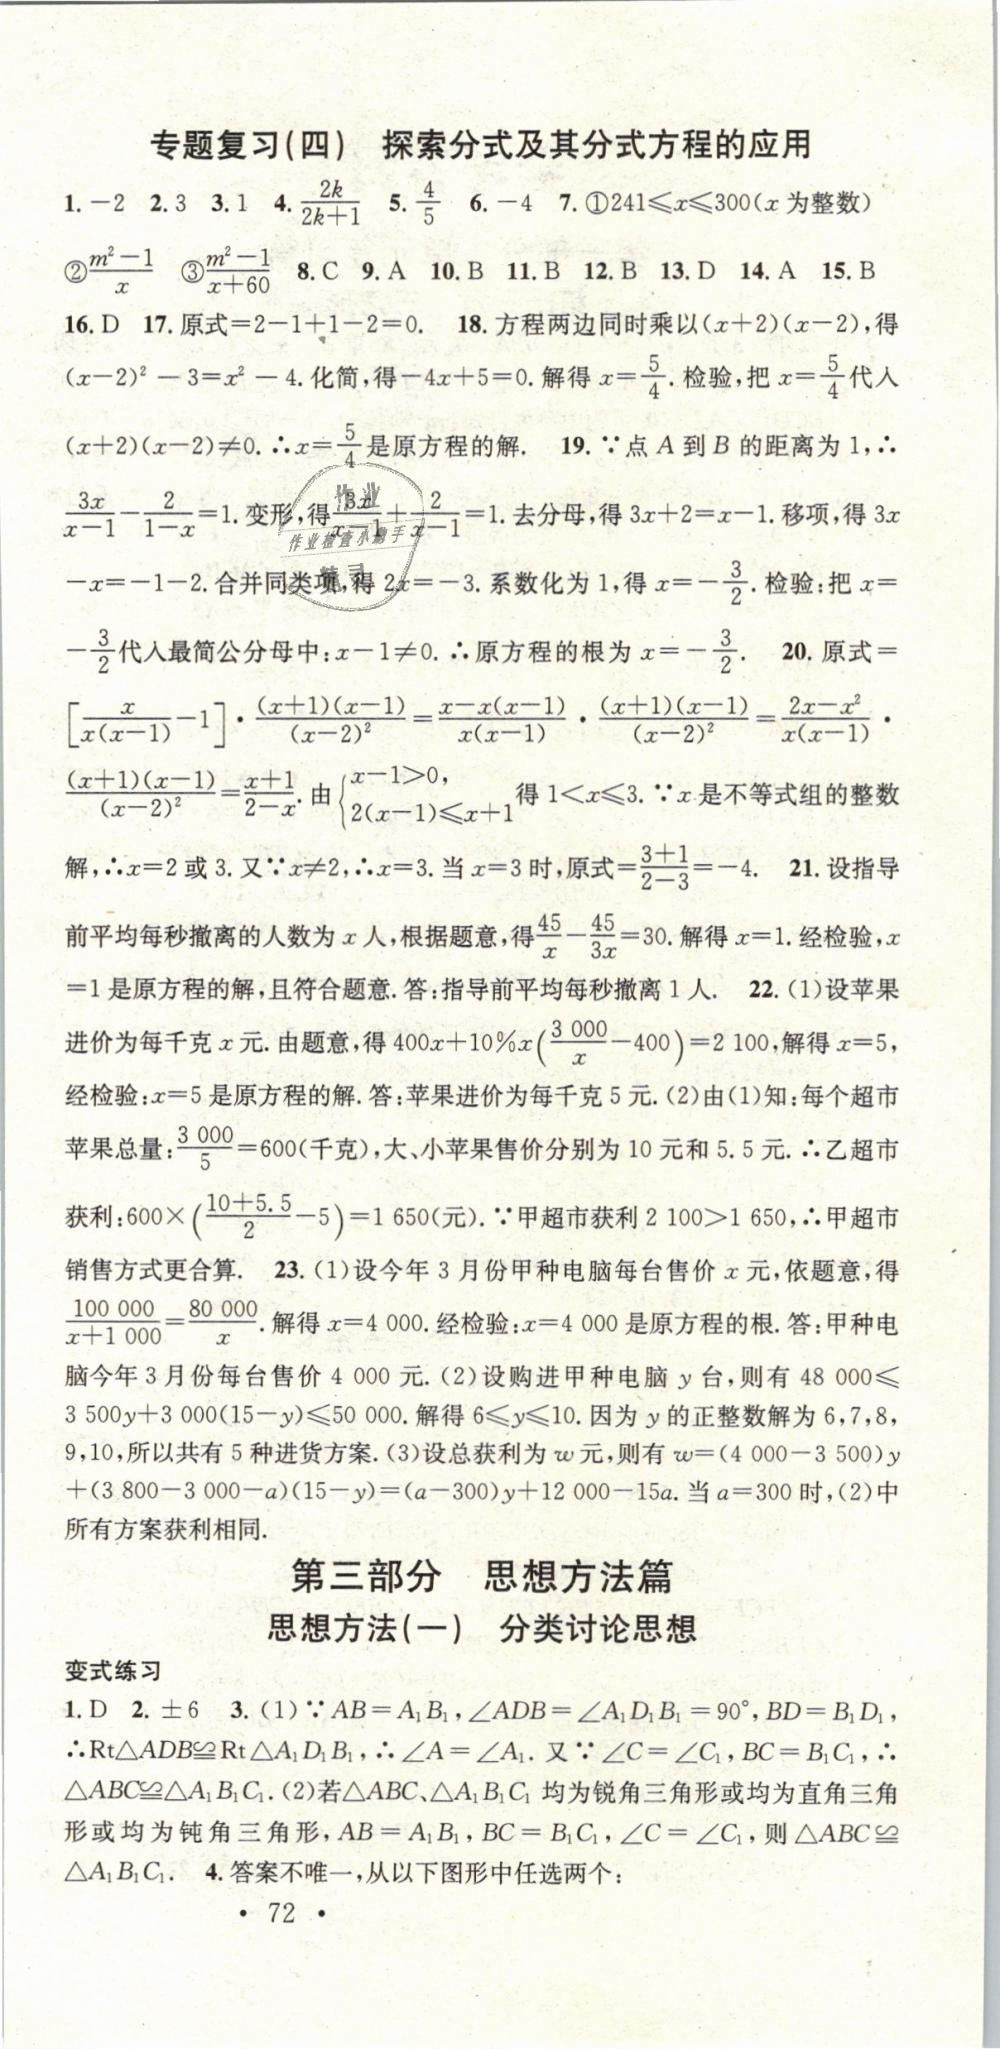 专题复习(四)　探索分式及其分式方程的应用
1.－2　2.3　3.1　4.2k/(2k＋1)　5.4/5　6.－4　7.①241≤x≤300(x为整数)
②(m²－1)/x　③(m²－1)/(x＋60)　8.C　9.A　10.B　11.B　12.B　13.D　14.A　15.B
16.D　17.原式＝2－1＋1－2＝0.　18.方程两边同时乘以(x＋2)(x－2),得
(x－2)²－3＝x²－4.化简,得－4x＋5＝0.解得x＝5/4.检验,把x＝5/4代入
(x＋2)(x－2)≠0.∴x＝5/4是原方程的解.　19.∵点A到B的距离为1,∴
3x/(x－1)－2/(1－x)＝1.变形,得3x/(x－1)＋2/(x－1)＝1.去分母,得3x＋2＝x－1.移项,得3x
－x＝－1－2.合并同类项,得2x＝－3.系数化为1,得x＝－3/2.检验:把x＝
－3/2代入最简公分母中:x－1≠0.∴原方程的根为x＝－3/2.　20.原式＝
[x/(x(x－1))－1]·(x＋1)(x－1)/(x－2)²＝(x－x(x－1))/(x(x－1))·(x＋1)(x－1)/(x－2)²＝(2x－x²)/(x(x－1))·
(x＋1)(x－1)/(x－2)²＝(x＋1)/(2－x).由{x－1>0, 2(x－1)≤x＋1得1<x≤3.∵x是不等式组的整数
解,∴x＝2或3.又∵x≠2,∴x＝3.当x＝3时,原式＝(3＋1)/(2－3)＝－4.　21.设指导
前平均每秒撤离的人数为x人,根据题意,得45/x－45/3x＝30.解得x＝1.经检验,x
＝1是原方程的解,且符合题意.答:指导前平均每秒撤离1人.　22.(1)设苹果
进价为每千克x元.由题意,得400x＋10%x(3 000/x－400)＝2 100,解得x＝5,
经检验:x＝5是原方程的解.答:苹果进价为每千克5元.(2)由(1)知:每个超市
苹果总量:3 000/5＝600(千克),大、小苹果售价分别为10元和5.5元.∴乙超市
获利:600×((10＋5.5)/2－5)＝1 650(元).∵甲超市获利2 100>1 650,∴甲超市
销售方式更合算.　23.(1)设今年3月份甲种电脑每台售价x元,依题意,得
100 000/(x＋1 000)＝80 000/x.解得x＝4 000.经检验:x＝4 000是原方程的根.答:甲种电
脑今年3月份每台售价4 000元.(2)设购进甲种电脑y台,则有48 000≤
3 500y＋3 000(15－y)≤50 000.解得6≤y≤10.因为y的正整数解为6,7,8,
9,10,所以共有5种进货方案.(3)设总获利为w元,则有w＝(4 000－3 500)y
＋(3 800－3 000－a)(15－y)＝(a－300)y＋12 000－15a.当a＝300时,(2)中
所有方案获利相同.
第三部分　思想方法篇
思想方法(一)　分类讨论思想
变式练习
1.D　2.±6　3.(1)∵AB＝A₁B₁,∠ADB＝∠A₁D₁B₁＝90°,BD＝B₁D₁,
∴Rt△ADB≌Rt△A₁D₁B₁,∴∠A＝∠A₁.又∵∠C＝∠C₁,BC＝B₁C₁,∴
△ABC≌△A₁B₁C₁.(2)若△ABC、△A₁B₁C₁均为锐角三角形或均为直角三角
形或均为钝角三角形,AB＝A₁B₁,BC＝B₁C₁,∠C＝∠C₁,则△ABC≌
△A₁B₁C₁.　4.答案不唯一,从以下图形中任选两个:
·72·
作业
作业检查小助手
精灵